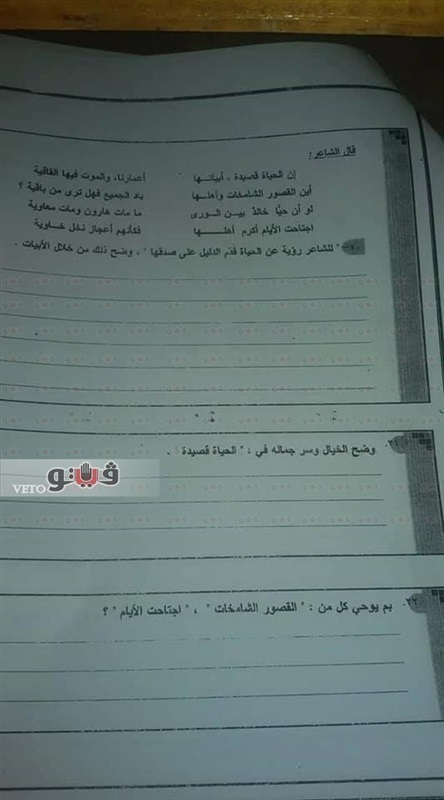 قال الشاعر:
إن الحياة قصيدة ، أبياتـــها أعمارنا، والموت فيها القافية
أين القصور الشامخات وأهلـــها باد الجميع فهل ترى من باقية ؟
لو أن حيًّا خالدٌ بيـــن الـــورى ما مات هارون ومات معاوية
اجتاحت الأيام أكرم أهلـــــها فكأنهم أعجاز نخل خـــاوية
" للشاعر رؤية عن الحياة قدّم الدليل على صدقها " ، وضح ذلك من خلال الأبيات .
وضح الخيال وسر جماله في : " الحياة قصيدة " .
VETO ڤيتو
بم يوحي كل من : " القصور الشامخات " ، " اجتاحت الأيام " ؟